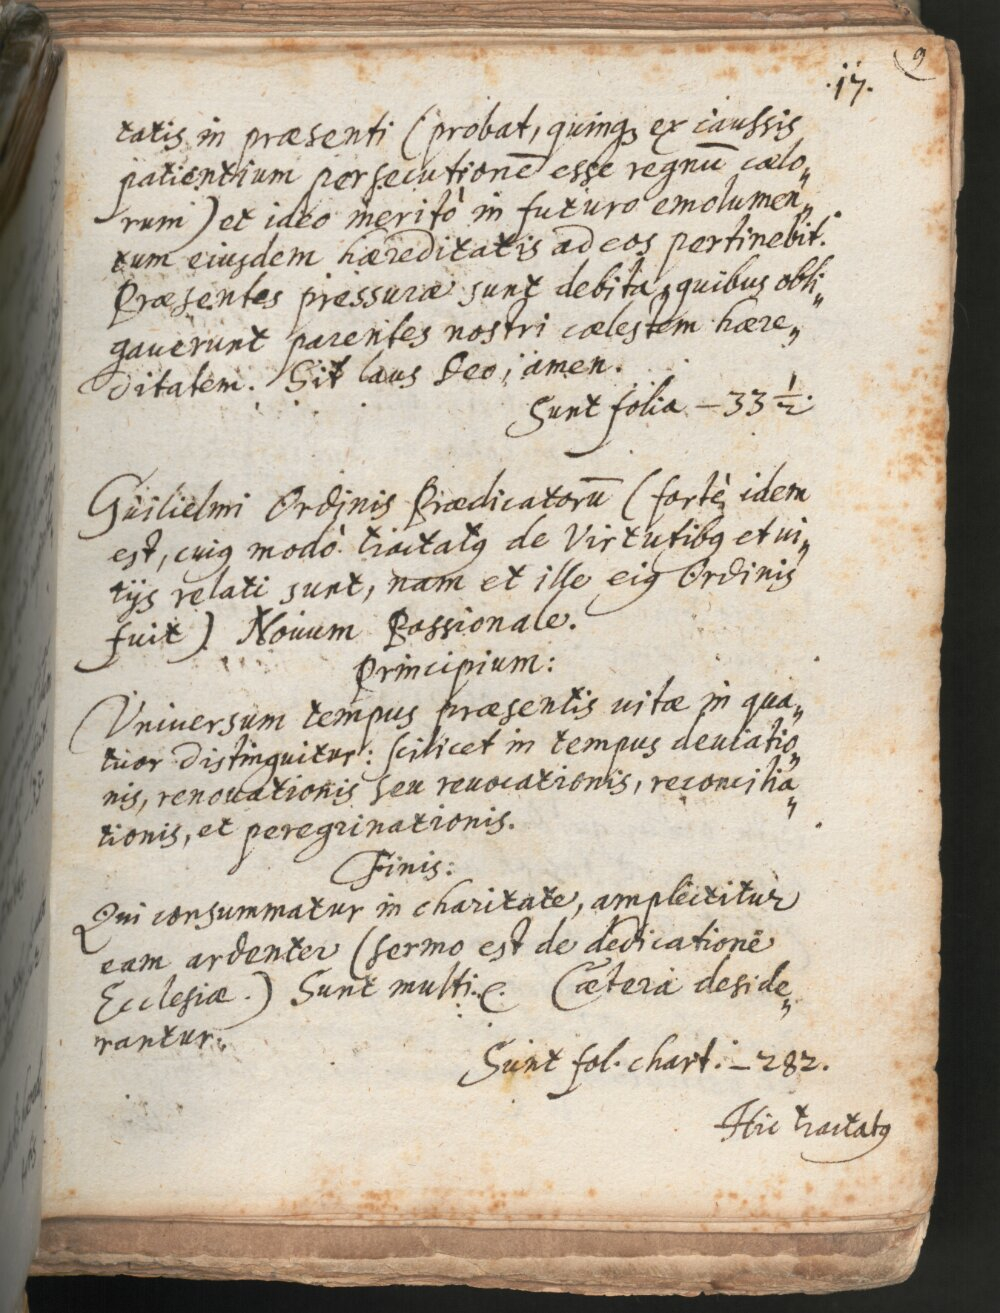 9
.17.
tatis in præsenti (probat, quinq, ex caussis
patientium persecutionē esse regnū cælo„
rum) et ideo meritò in futuro emolumen„
tum eiusdem hæreditatis ad eos pertinebit.
Præsentes pressuræ sunt debita, quibus obli„
gauerunt parentes nostri cælestem hære„
ditatem. Sit laus Deo, amen.
Sunt folia – 33 ½.
Guilielmi Ordinis Prædicatorū (fortè idem
est, cuiꝰ modò tractatꝰ de Virtutibꝰ et ui„
tijs relati sunt, nam et ille eiꝰ Ordinis
fuit) Nouum Passionale.
Principium:
Vniuersum tempus præsentis uitæ in qua„
tuor distinguitur: scilicet in tempus deuiatio„
nis, renouationis seu reuocationis, reconcilia„
tionis, et peregrinationis.
Finis:
Qui consummatur in charitate, amplectitur
eam ardenter (sermo est de dedicatione
Ecclesiæ.) Sunt multi. Cætera deside„
rantur.
Sunt fol. chart. – 282.
Hic tractatꝰ